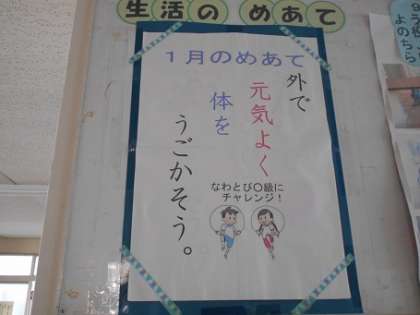 生活の めあて
1月のめあて
外で
元気よく
体を
うごかそう。
なわとび〇級に
チャレンジ！